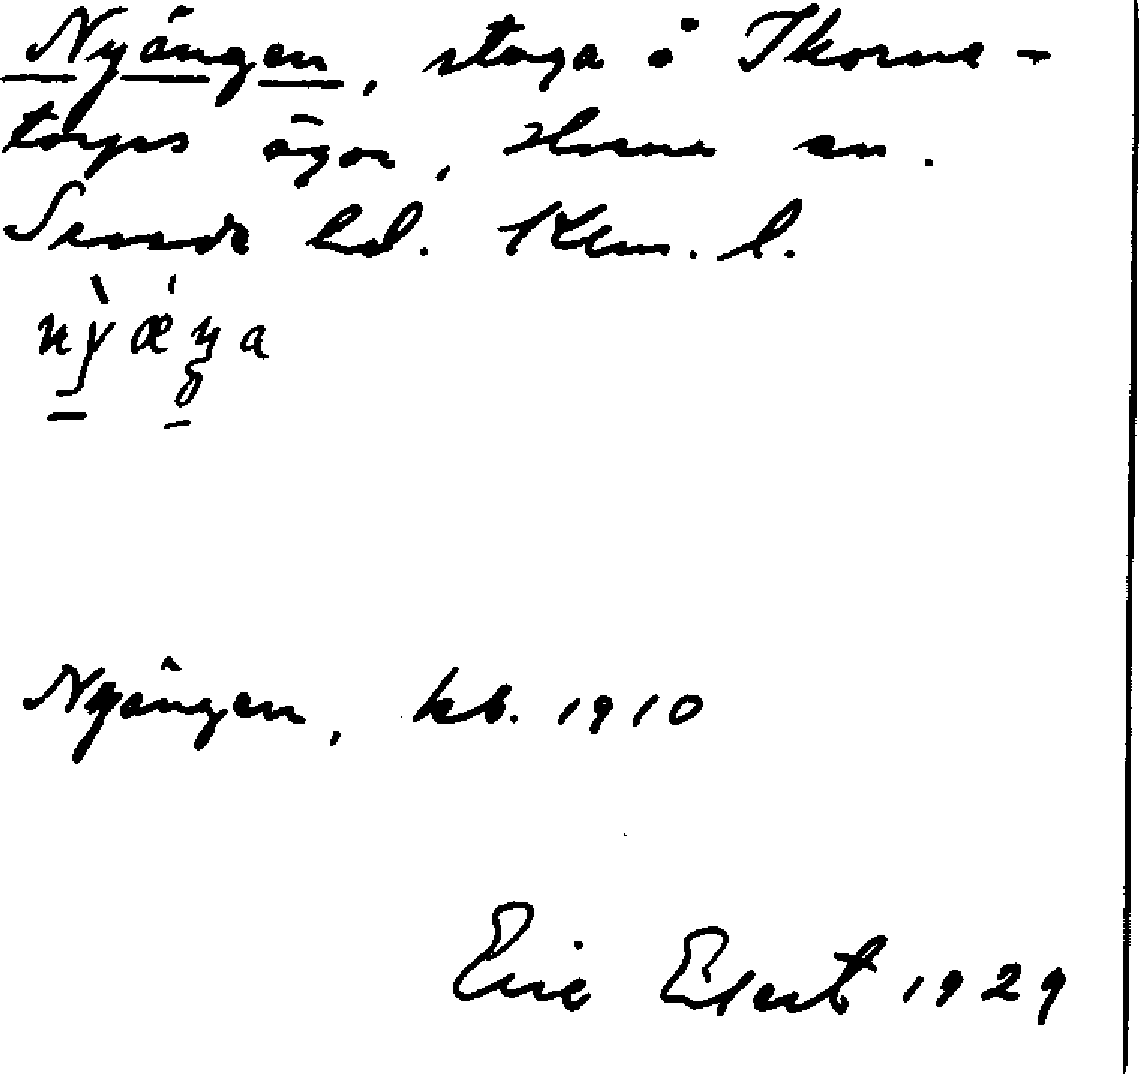 Nyängen, stuga å Ikorne-
torps ägor, Tuna sn.
Sevede hd. Klm. l.
nỳǽŋa
Nyängen, kb. 1910
Eric Elert 1929